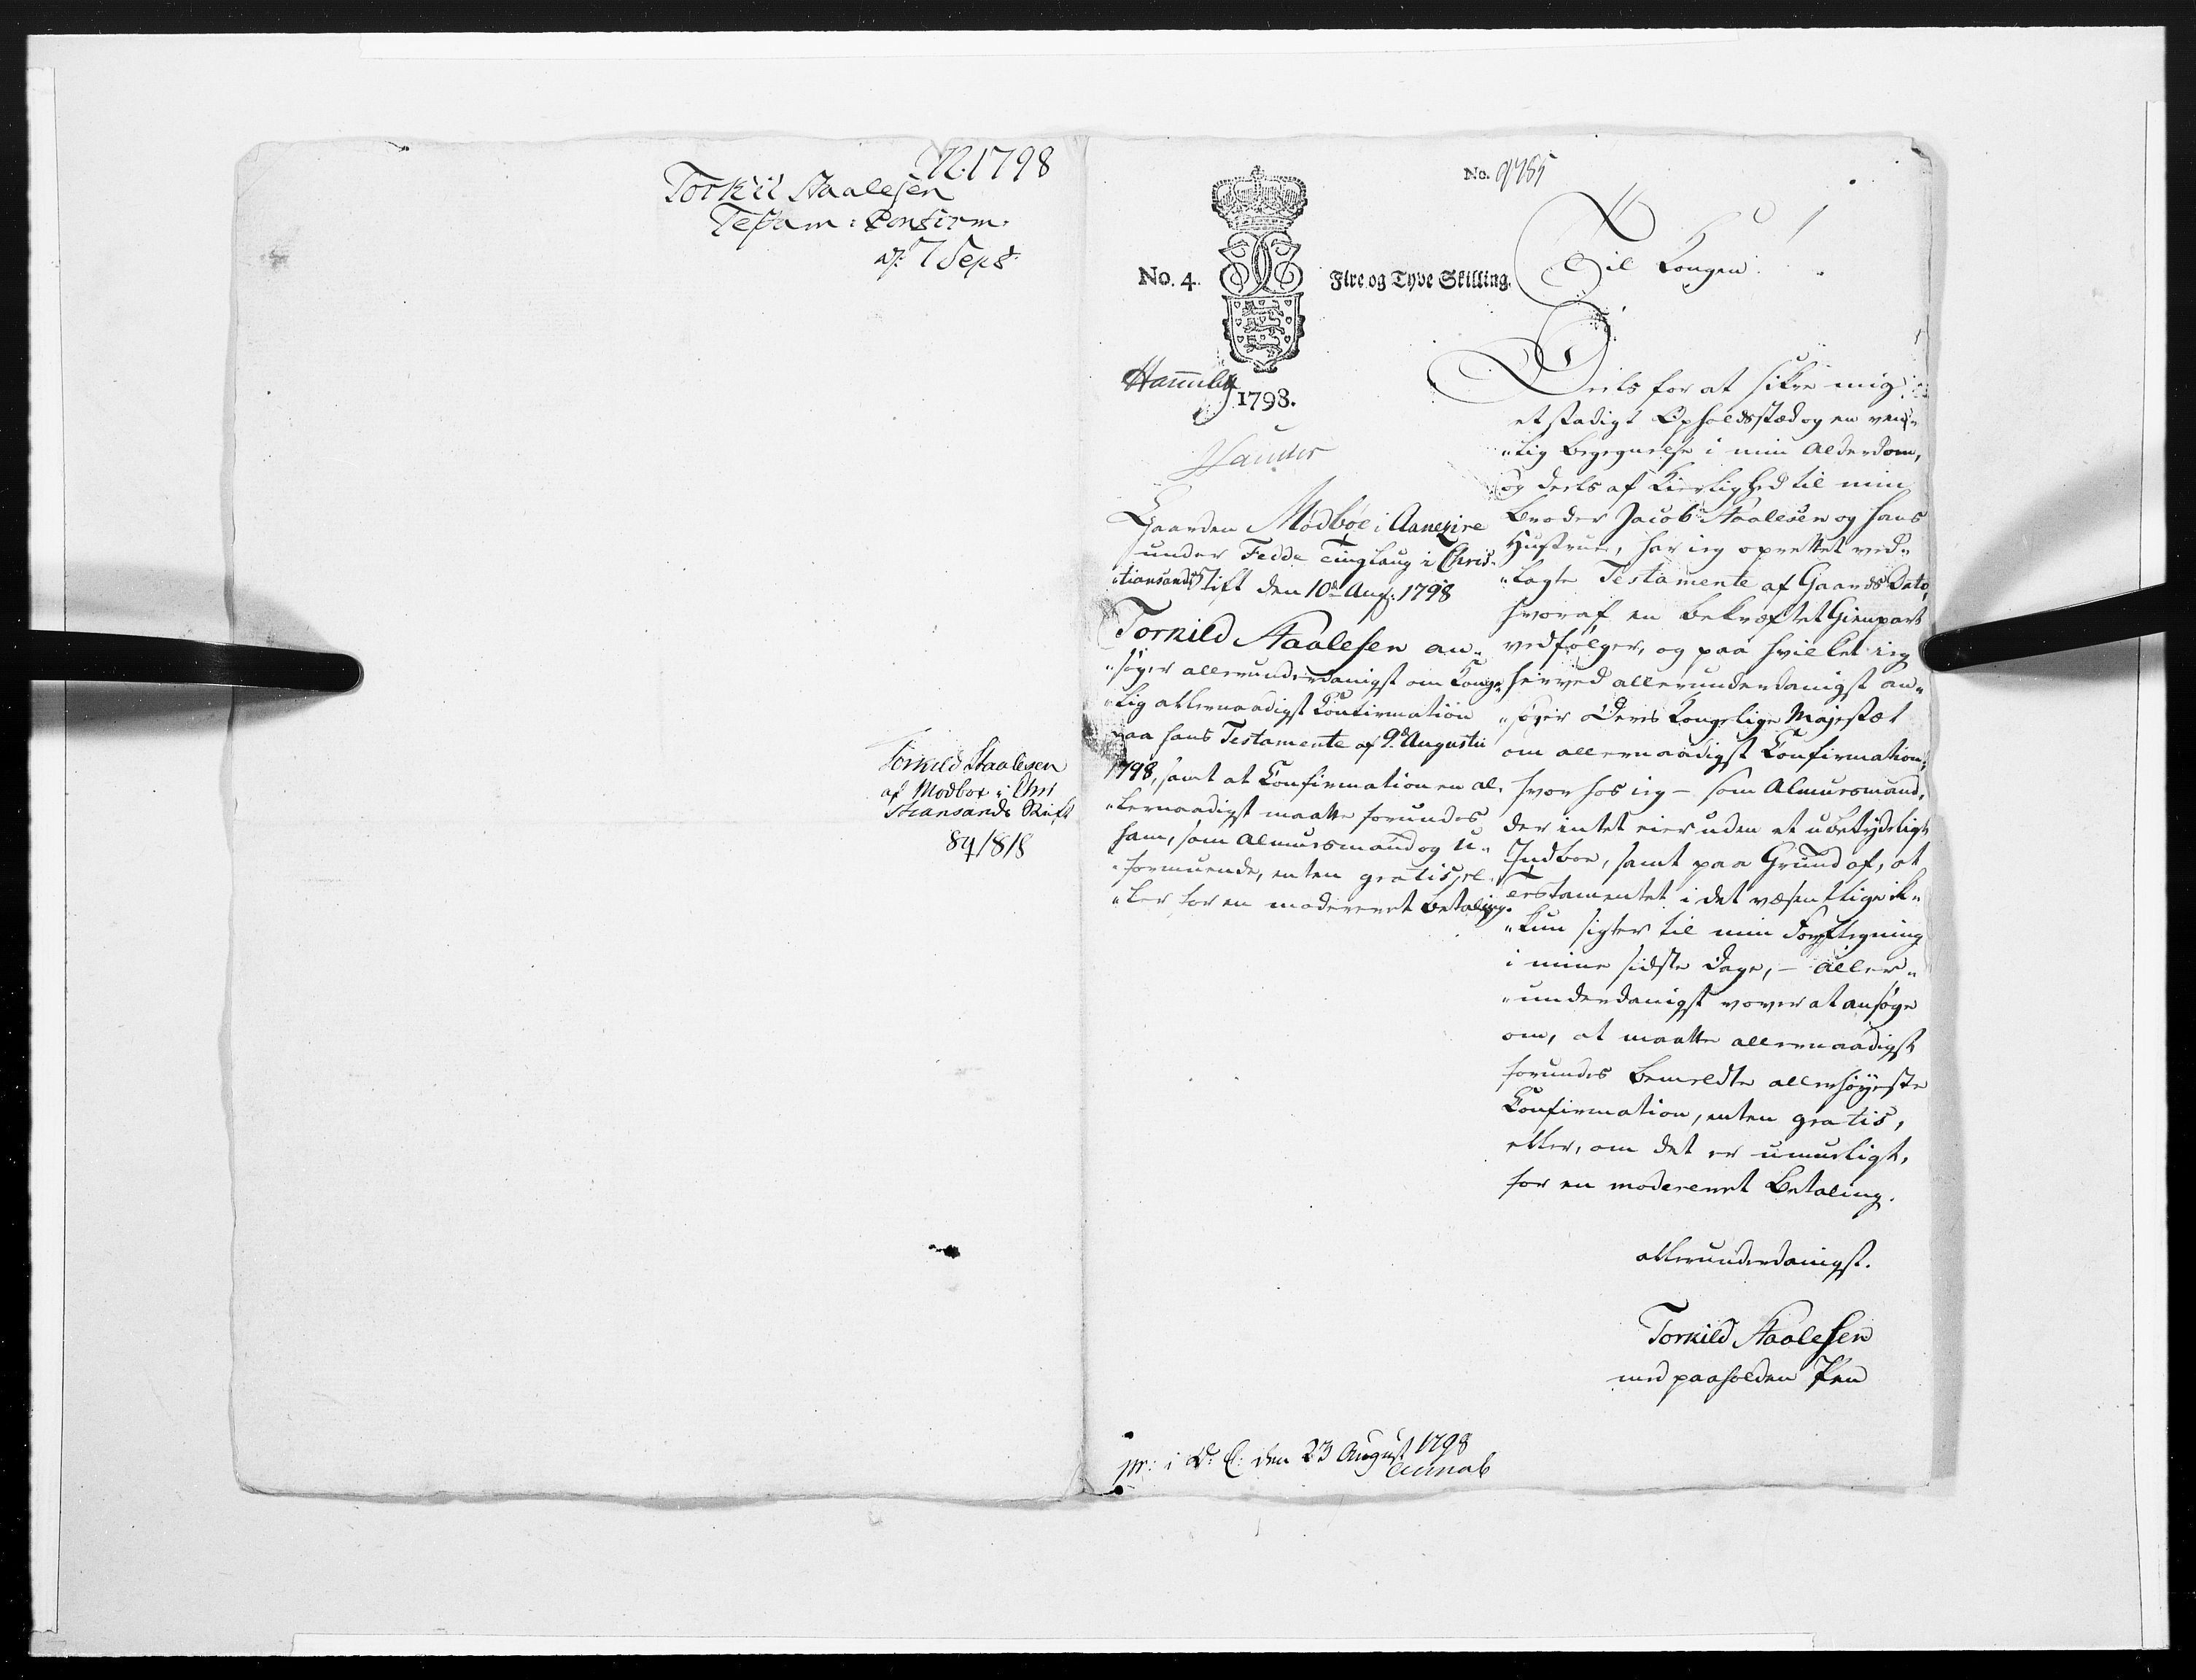 N. 1798
Torkil Staalesen
Testam: Confirm.
af: 7 Sept
Torkild Staalesen
af Modboe i Chri
stiansands Stift
84/8/8
No. 9785
No. 4.
Fire og Tyve Skilling.
1798.
Gaarden Mødbøe i Aanezire
under Fedde Tinglaug i Chris-
"tiansands Stift den 10de Aug: 1798
Torkild Staalesen an-
"søger allerunderdanigst om Konge-
"lig allernaadigst Confirmation
paa hans Testamente af 9de Augustii
1798, samt at Confirmationen al-
"lernaadigst maatte forundes
ham, som Almuesmand og u-
"formuende, enten gratis, el-
"ler for en modereret Betaling.
Til Kongen!
Deels for at sikre mig
et stadigt Opholdsstæd og en ven-
"lig Begegnelse i min Alderdom,
og deels af Kierlighed til min
Broder Jacob Staalesen og hans
Hustrue, har jeg oprettet ved-
"lagte Testamente af Gaards Dato,
hvoraf en bekræftet Gienpart
vedfølger, og paa hvilket jeg
herved allerunderdanigst an-
"søger Deres Kongelige Majestæt
om allernaadigst Confirmation;
hvorhos jeg – som Almuesmand,
der intet eier uden et ubetydeligt
Indboe, samt paa Grund af, at
Testamentet i det væsentlige ik-
"kun sigter til min Forpflegning
i mine sidste Dage, – aller-
"underdanigst vover at ansøge
om, at maatte allernaadigst
forundes bemeldte allerhøyeste
Confirmation, enten gratis,
eller, om det er umueligt,
for en modereret Betaling.
allerunderdanigst.
Torkild Staalesen
med paaholden Pen
pr: i D: C: den 23 August 1798